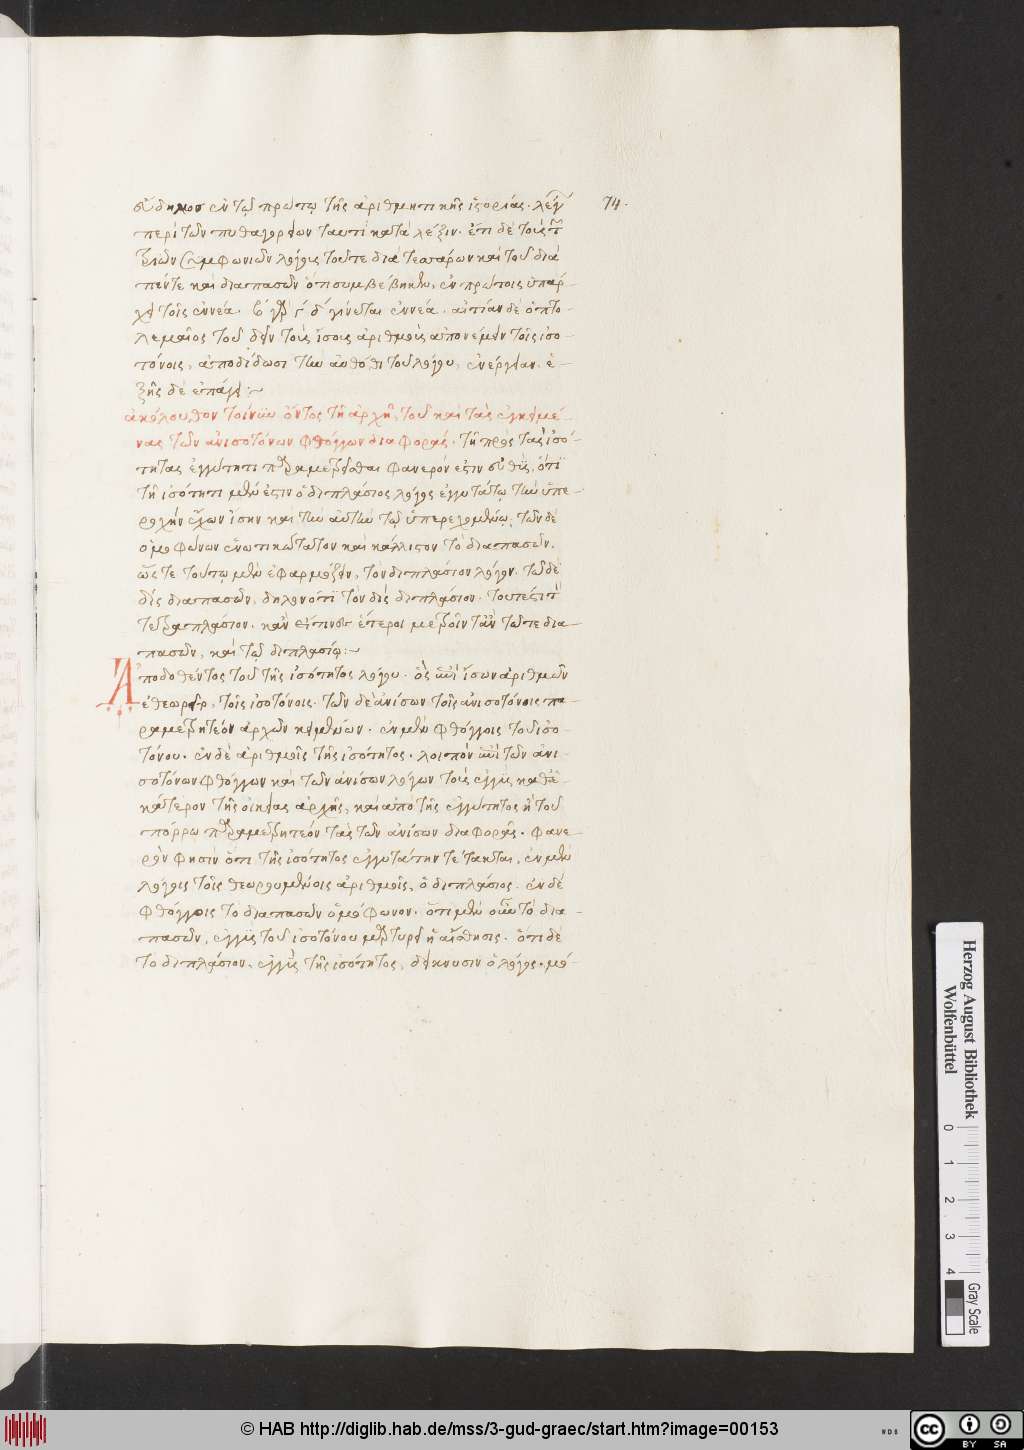 εὔδημος ἐν τῷ πρώτῳ τῆς ἀριθμητικῆς ἱστορίας. λέγων 74.
περὶ τῶν πυθαγορείων ταυτὶ κατὰ λέξιν. ἔτι δὲ τοὺς τῶν
τριῶν συμφωνιῶν λόγους τοῦ τε διὰ τεσσάρων καὶ τοῦ διὰ
πέντε καὶ διαπασῶν ὅτι συμβέβηκεν, ἐν πρώτοις ὑπάρ-
χειν τοῖς ἐννέα. β γὰρ γ δ γίνεται ἐννέα. αἰτίαν δὲ ὁ πτο-
λεμαῖος τοῦ δεῖν τοὺς ἴσους ἀριθμοὺς ἀπονέμειν τοῖς ἰσο-
τόνοις, ἀποδίδωσι τοῦ λόγου, ἐνέργειαν. ἑ-
ξῆς δὲ ἐπάγει :~
ἀκόλουθον τοίνυν ὄντος τῇ ἀρχῇ, τοῦ καὶ τὰς ἐγκειμέ-
νας τῶν ἀνισοτόνων φθόγγων διαφοράς. τῇ πρὸς τὰς ἰσό-
τητας ἐγγύτητι παραμετρεῖσθαι φανερόν ἐστιν εὐθὺς, ὅτι
τῇ ἰσότητι μέν ἐστιν ὁ διπλάσιος λόγος ἐγγυτάτω τὴν ὑπε-
ροχὴν ἔχων ἴσην καὶ τὴν αὐτὴν τῷ ὑπερεχομένῳ, τῶν δὲ
ὁμοφώνων ἑνωτικώτατον καὶ κάλλιστον τὸ διαπασῶν.
ὥστε τούτῳ μὲν ἐφαρμόζειν, τὸν διπλάσιον λόγον. τῷ δὲ
δὶς διαπασῶν, δηλονότι τὸν δὶς διπλάσιον. τουτέστι τὸν
τετραπλάσιον. κἂν εἴ τινες ἕτεροι μετροῖντ' ἂν τῷ τε δια-
πασῶν, καὶ τῷ διπλασίῳ :~
Ἀποδοθέντος τοῦ τῆς ἰσότητος λόγου. ὃς ἐπὶ ἴσων ἀριθμῶν
ἐθεωρεῖτο, τοῖς ἰσοτόνοις. τῶν δὲ ἀνίσων τοῖς ἀνισοτόνοις πα-
ραμετρητέον ἀρχῶν κειμένων. ἐν μὲν φθόγγοις τοῦ ἰσο-
τόνου. ἐν δὲ ἀριθμοῖς τῆς ἰσότητος. λοιπὸν ἐπὶ τῶν ἀνι-
σοτόνων φθόγγων καὶ τῶν ἀνίσων λόγων τοὺς ἐγγὺς καθ' ἑ-
κάτερον τῆς οἰκείας ἀρχῆς, καὶ ἀπὸ τῆς ἐγγύτητος ἢ τοῦ
πόρρω παραμετρητέον τὰς τῶν ἀνίσων διαφοράς. φανε-
ρὸν φησὶν ὅτι τῆς ἰσότητος ἐγγυτάτην τέτακται, ἐν μὲν
λόγοις τοῖς θεωρουμένοις ἀριθμοῖς, ὁ διπλάσιος. ἐν δὲ
φθόγγοις τὸ διαπασῶν ὁμόφωνον. ὅτι μὲν οὖν τὸ δια-
πασῶν, ἐγγὺς τοῦ ἰσοτόνου μαρτυρεῖ ἡ αἴσθησις. ὅτι δὲ
τὸ διπλάσιον, ἐγγὺς τῆς ἰσότητος, δείκνυσιν ὁ λόγος. μό-
Herzog August Bibliothek
Wolfenbüttel
0 1 2 3 4
Gray Scale
© HAB http://diglib.hab.de/mss/3-gud-graec/start.htm?image=00153
WDB
cc BY SA